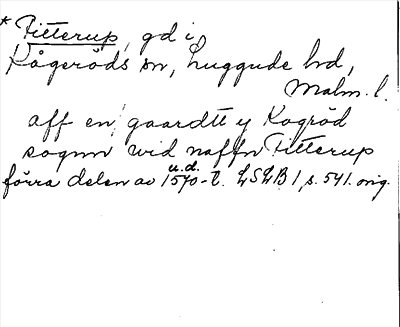 * Fitterup, gd i
Kågeröds sn, Luggude hd,
Malm. l.
aff en gaardtt y Kogröd
sognn wid naffn Fitterup
u.d.
förra delen av 1570-t. LSLB 1, s. 541. orig.